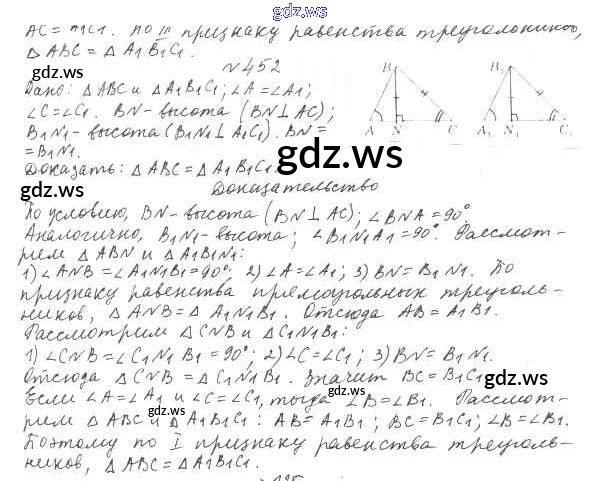 gdz.ws
AC = A1C1. По III признаку равенства треугольников,
△ ABC = △ A1B1C1.
№ 452
Дано: △ ABC и △ A1B1C1; ∠A = ∠A1;
∠C = ∠C1. BN - высота (BN ⊥ AC);
B1N1 - высота (B1N1 ⊥ A1C1). BN =
= B1N1.
Доказать: △ ABC = △ A1B1C1.
B B1
A N C A1 N1 C1
gdz.ws
gdz.ws
gdz.ws
Доказательство
По условию, BN - высота (BN ⊥ AC); ∠BNA = 90°.
Аналогично, B1N1 - высота; ∠B1N1A1 = 90°. Рассмот-
рим △ ABN и △ A1B1N1:
1) ∠ANB = ∠A1N1B1 = 90°; 2) ∠A = ∠A1; 3) BN = B1N1. По
признаку равенства прямоугольных треуголь-
ников, △ ANB = △ A1N1B1. Отсюда AB = A1B1.
Рассмотрим △ CNB и △ C1N1B1:
1) ∠CNB = ∠C1N1B1 = 90°; 2) ∠C = ∠C1; 3) BN = B1N1.
Отсюда △ CNB = △ C1N1B1. Значит BC = B1C1.
Если ∠A = ∠A1 и ∠C = ∠C1, тогда ∠B = ∠B1. Рассмот-
рим △ ABC и △ A1B1C1: AB = A1B1; BC = B1C1; ∠B = ∠B1.
Поэтому по I признаку равенства треуголь-
ников, △ ABC = △ A1B1C1.
gdz.ws
gdz.ws
gdz.ws
gdz.ws
gdz.ws